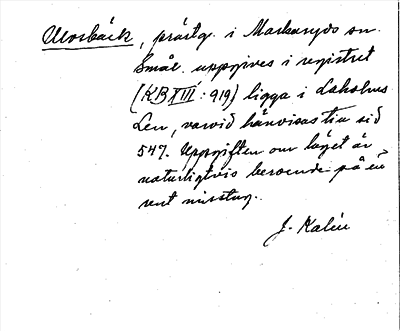 Ulvsbäck, prästg. i Markaryds sn.
Smål. uppgives i registret
(KB XVI : 919) ligga i Laholms
Län, varvid hänvisas till sid
547. Uppgiften om läget är
naturligtvis beroende på ett
rent misstag.
J. Kalén